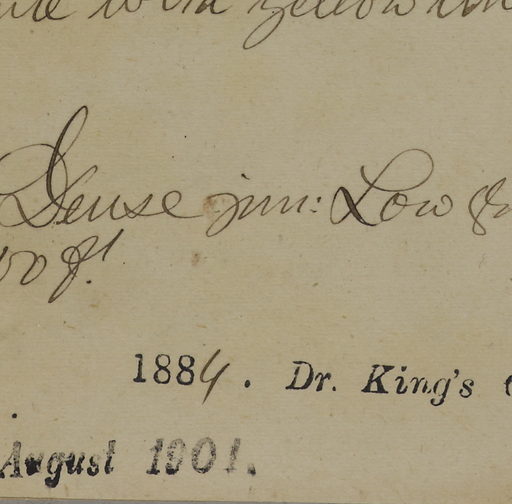 yellow
Dense jun: Low &
00 ft.
1884. Dr. King's
August 1901.